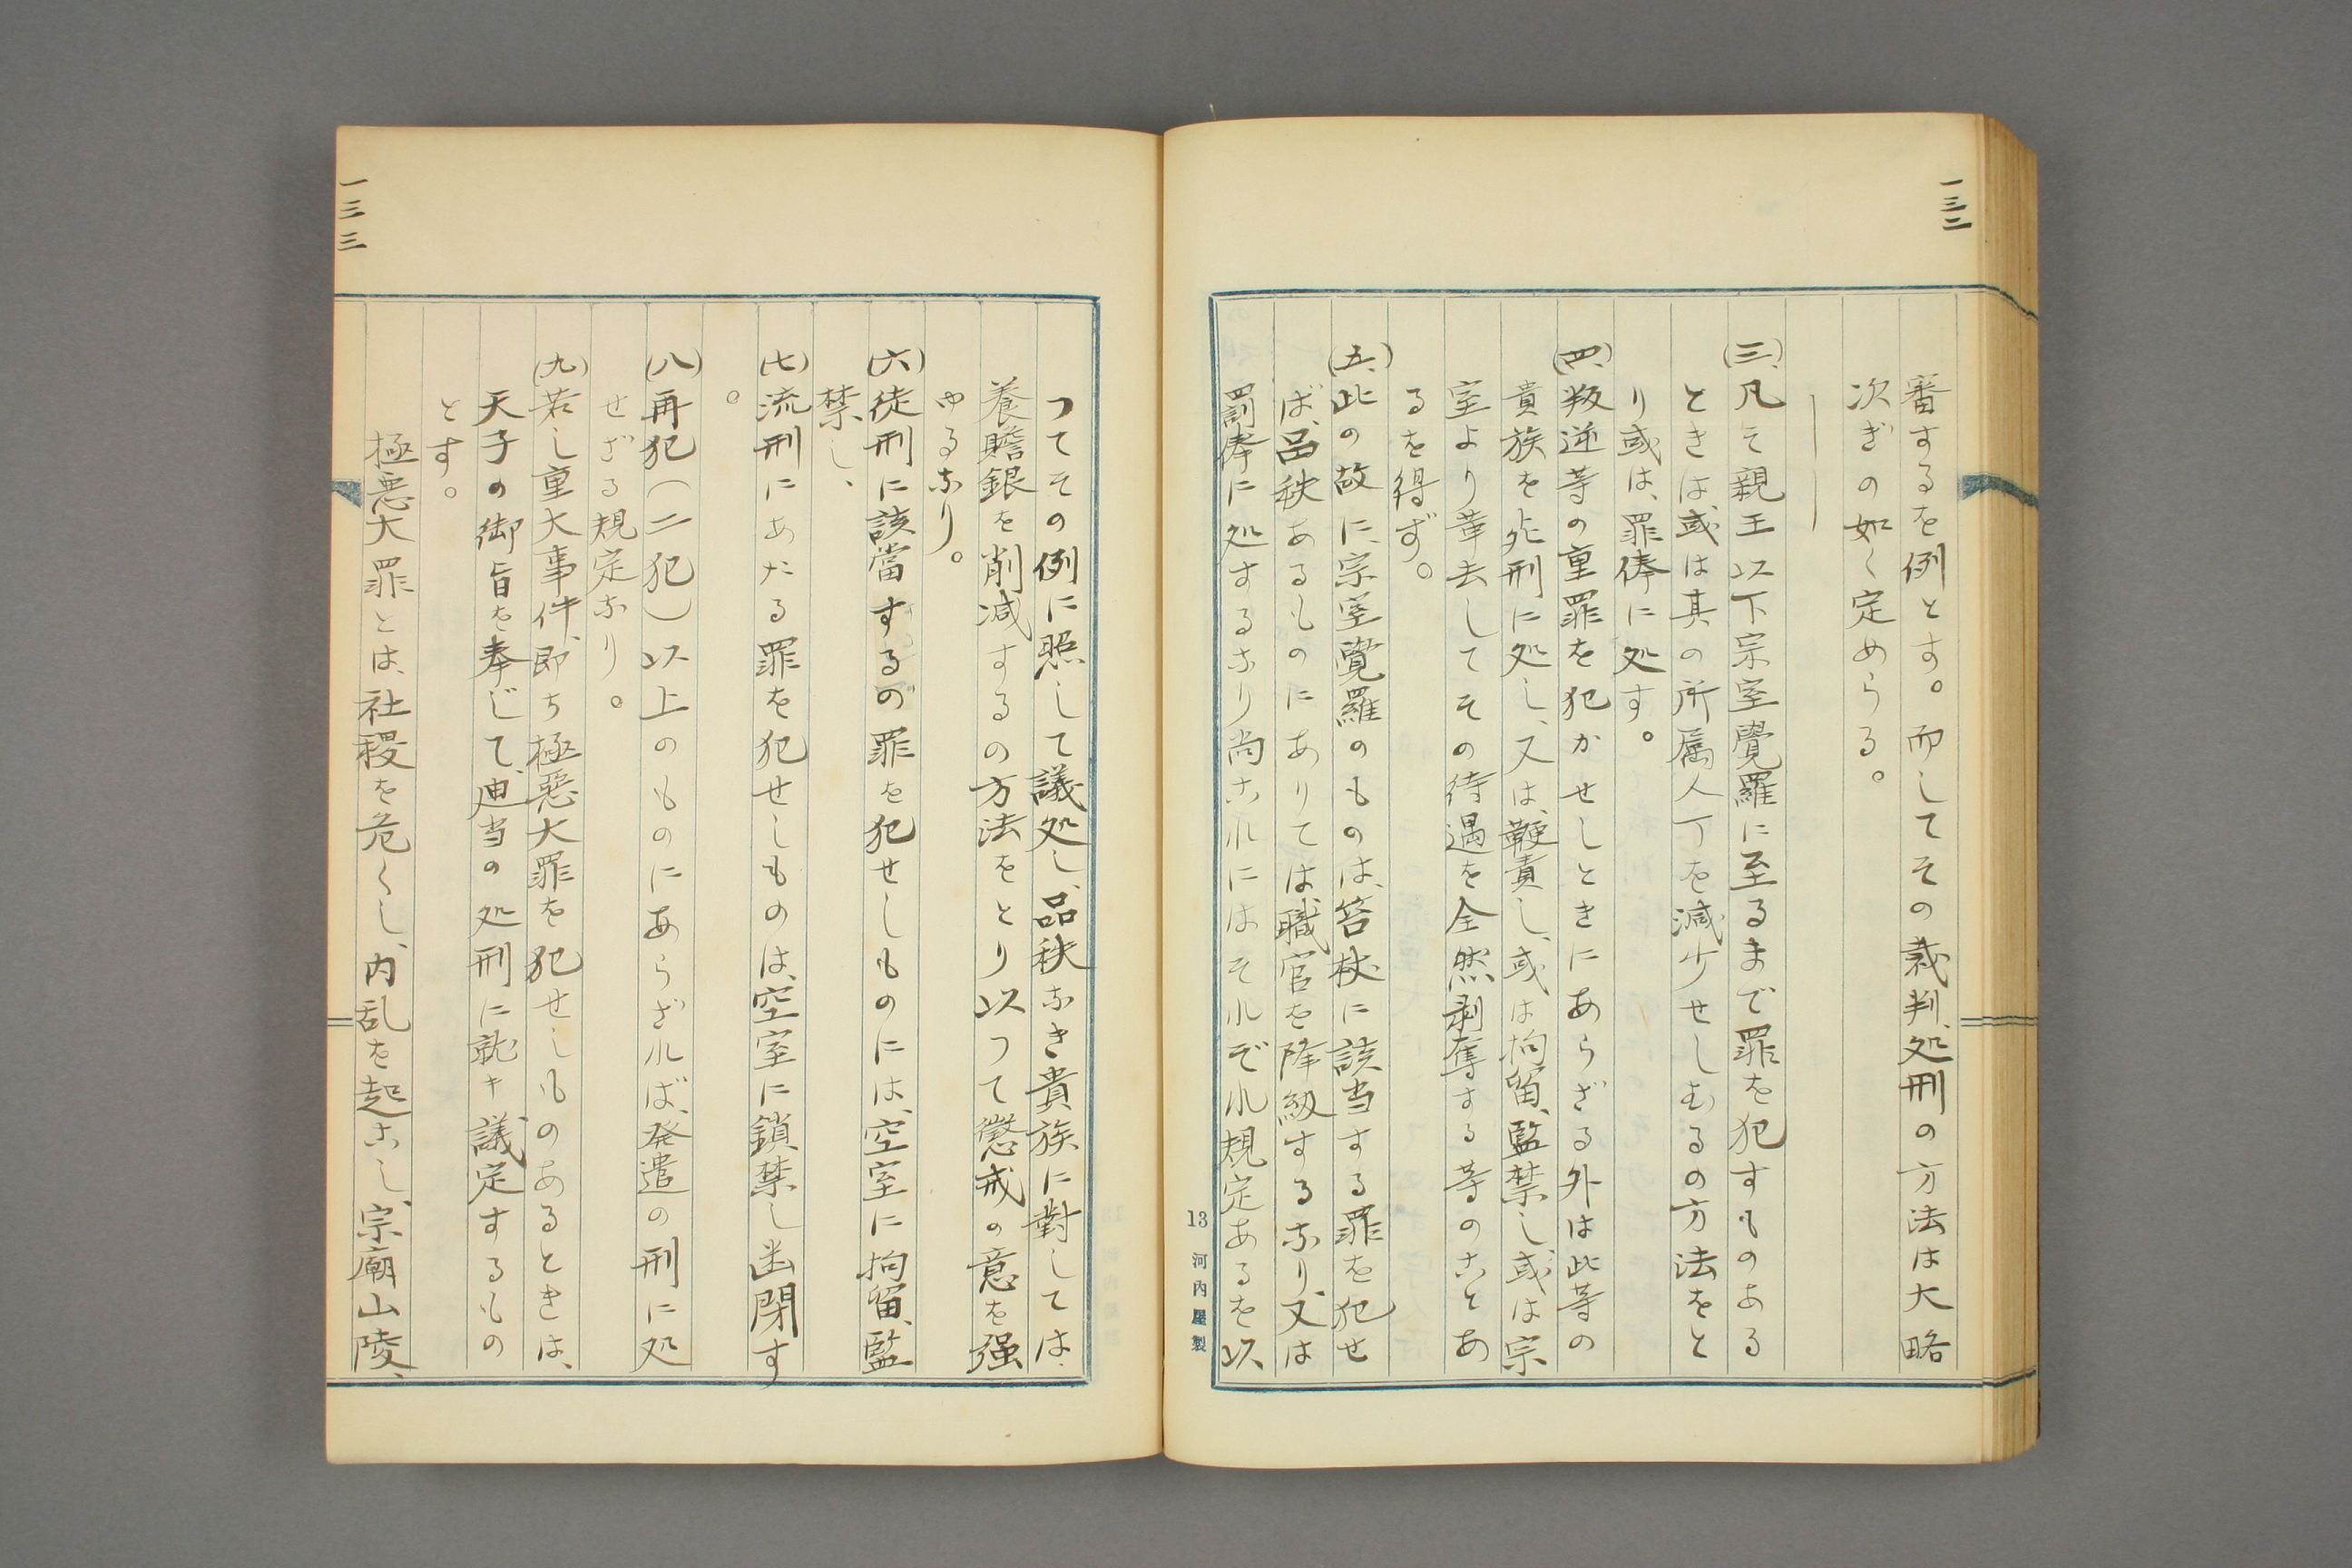 一三二
審するを例とす。而してその裁判、処刑の方法は大略
次ぎの如く定めらる。
(三)、凡そ親王以下宗室覺羅に至るまで罪を犯すものある
ときは、或は其の所属人丁を減少せしむるの方法をと
り或は、罪俸に処す。
(四)、叛逆等の重罪を犯かせしときにあらざる外は此等の
貴族を死刑に処し、又は、鞭責し、或は拘留、監禁し、或は宗
室より革去してその待遇を全然剥奪する等のことあ
るを得ず。
(五)、此の故に、宗室覺羅のものは、笞杖に該当する罪を犯せ
ば、品秩あるものにありては職官を降級するなり、又は
罰俸に処するなり尚これにはそれぞれ規定あるを以
13 河内屋製
一三三
つてその例に照して議処し、品秩なき貴族に對しては、
養贍銀を削減するの方法をとり以つて懲戒の意を强
ゆるなり。
(六)徒刑に該當するの罪を犯せしものには、空室に拘留、監
禁し、
(七)流刑にあたる罪を犯せしものは、空室に鎖禁し幽閉す
。
(八)再犯(二犯)以上のものにあらざれば、発遣の刑に処
せざる規定なり。
(九)若し重大事件、即ち極惡大罪を犯せしものあるときは、
天子の御旨を奉じて、廸当の処刑に就キ議定するもの
とす。
極悪大罪とは、社稷を危くし、内乱を起こし、宗廟山陵、